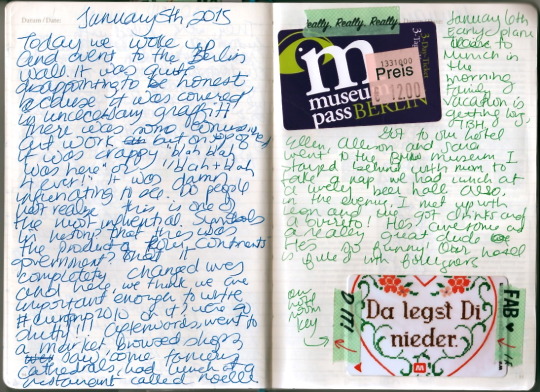 January 5th 2015
Today we woke up
and went to the Berlin
wall. It was quite
disappointing to be honest
because it was covered
in unnecessary graffiti
there was some genuine
art work but on
it was crappy "blah blah
was here" or "blah + blah
4 ever". It was damn
infuriating to see. Do people
not realise this is one of
the most influential symbols
in history, that this was
the product of four continents
governments that it
completely changed lives
and here, we think we are
important enough to write
# during 2010 on it, were so
shitty!!! Afterwords went to
a market, browsed shops
say, some famous
Cathedrals, had lunch at a
restaurant called noelle
eally. Really. Really.
3-Tage
3-Day-Ticket
1331000
Preis
€ 12.00
m
museum
pass BERLIN
January 6th
Early plane
to
Munich in
the
morning
Family
vacation is
getting long,
TBH!
Got to our hotel
Ellen, Allison and Sara
went to the BMW museum I
stayed behind with mom to
take a nap. we had lunch at
a lovely beer hall also.
in the evening, I met up with
leon and we got drinks and
a burrito! He's awesome and
a really great dude
He's so funny! Our hotel
is full with foreigners
our
hotel
room
key
D!!!
Da legst Di
nieder.
FAB ♥